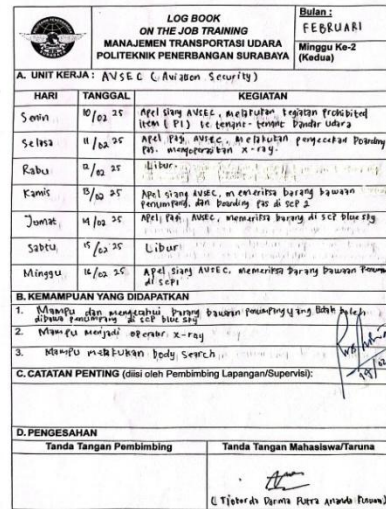 LOG BOOK
ON THE JOB TRAINING
MANAJEMEN TRANSPORTASI UDARA
POLITEKNIK PENERBANGAN SURABAYA
Bulan :
FEBRUARI
Minggu Ke-2
(Kedua)
A. UNIT KERJA : AVSEC (Aviation Security)
HARI TANGGAL KEGIATAN
Senin 10/02 25 Apel siang AVSEC, melakukan kegiatan prohibited
item (PI) ke tenant-tenant bandar udara
Selasa 11/02 25 Apel Pagi AVSEC, melakukan pengecekan boarding
pas. mengoperasikan x-ray.
Rabu 12/02 25 Libur.
Kamis 13/02 25 Apel siang AVSEC, memeriksa barang bawaan
penumpang, dan boarding pas di SCP 2
Jumat 14/02 25 Apel Pagi AVSEC, memeriksa barang di SCP blue sky
Sabtu 15/02 25 Libur
Minggu 16/02 25 Apel siang AVSEC, memeriksa barang bawaan
di SCP1
B. KEMAMPUAN YANG DIDAPATKAN
1. Mampu dan mengetahui barang bawaan penumpang yang tidak boleh
dibawa penumpang di SCP blue sky
2. Mampu menjadi operator x-ray
3. Mampu melakukan body search
C. CATATAN PENTING (diisi oleh Pembimbing Lapangan/Supervisi):
D. PENGESAHAN
Tanda Tangan Pembimbing Tanda Tangan Mahasiswa/Taruna
(Tjokorda Darma Putra Ananda